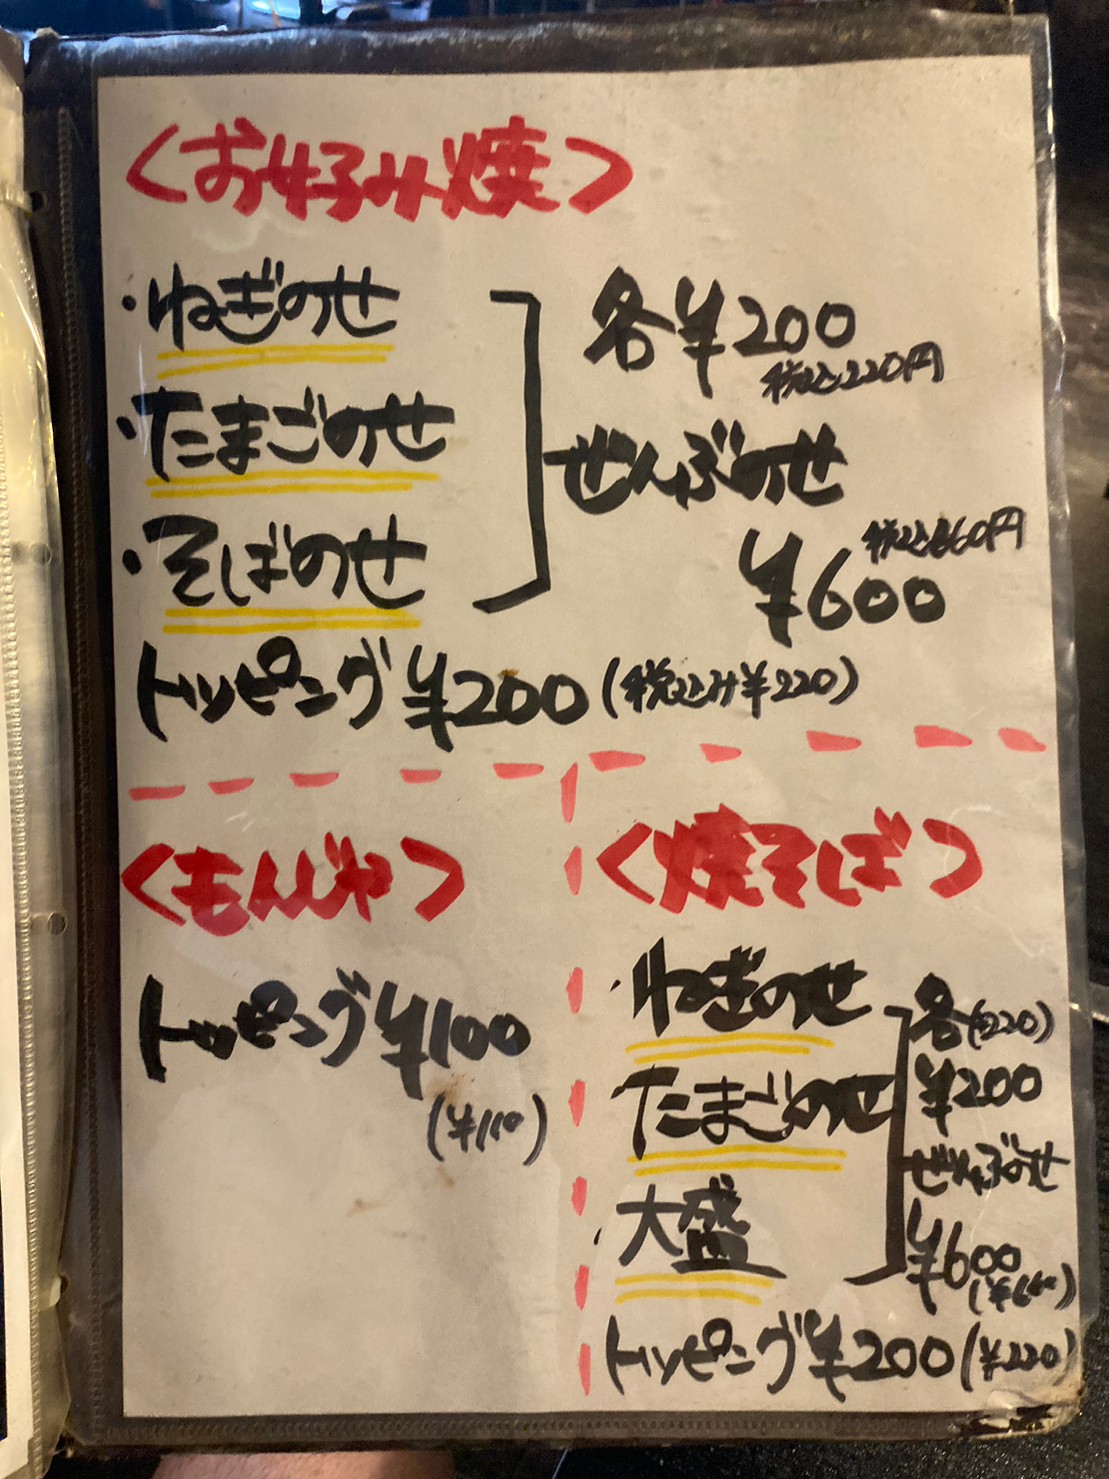 〈お好み焼〉
・ねぎのせ
・たまごのせ
・そばのせ
各¥200
税込220円
ぜんぶのせ
税込660円
¥600
トッピング¥200(税込み¥220)
〈もんじゃ〉
トッピング¥100
(¥110)
〈焼そば〉
・ねぎのせ
・たまごのせ
・大盛
各(¥220)
¥200
ぜんぶのせ
¥600
(¥660)
トッピング¥200(¥220)